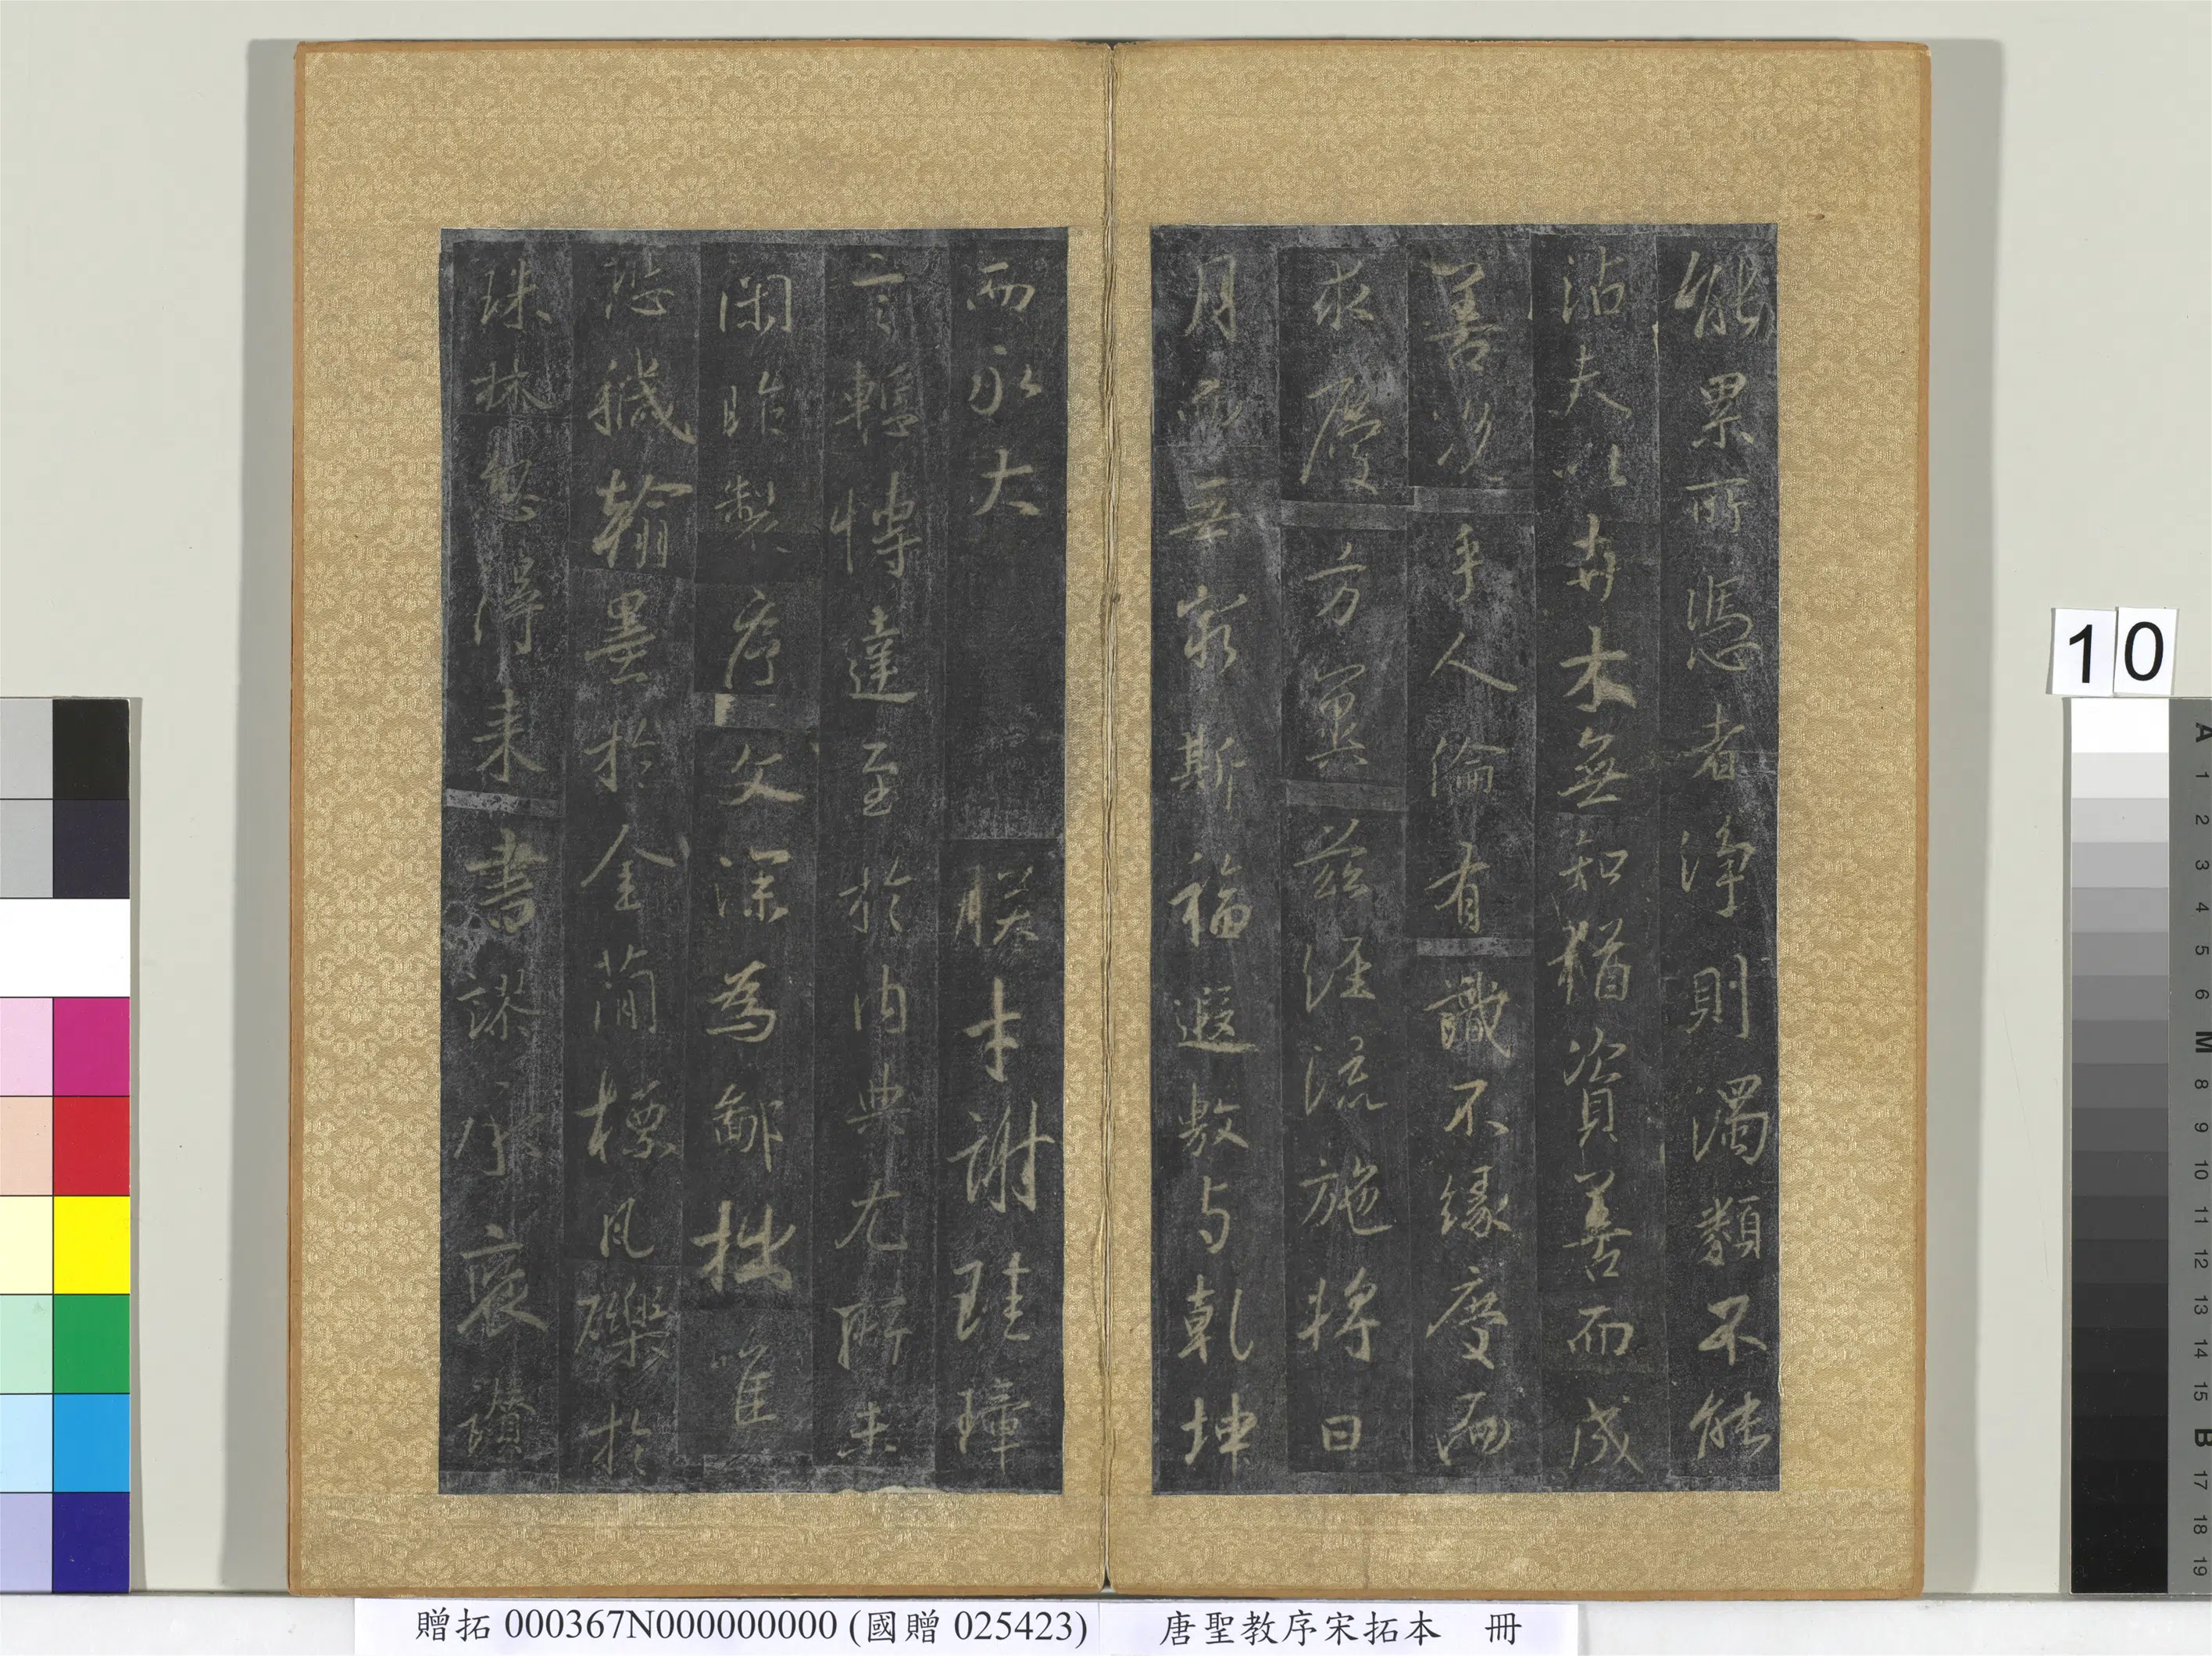 能累所憑者淨則濁類不能
沾夫以卉木無知猶資善而成
善況乎人倫有識不緣慶而
求慶方冀茲經流施將日
月而無窮斯福遐敷与乾坤
而永大 朕才謝珪璋
言慙博達至於內典尤所未
閑昨製序文深為鄙拙唯
恐穢翰墨於金簡標瓦礫於
珠林忽得来書謬承褒讚
10
A 1 2 3 4 5 6 M 8 9 10 11 12 13 14 15 B 17 18 19
贈拓 000367N000000000 (國贈 025423) 唐聖教序宋拓本 冊